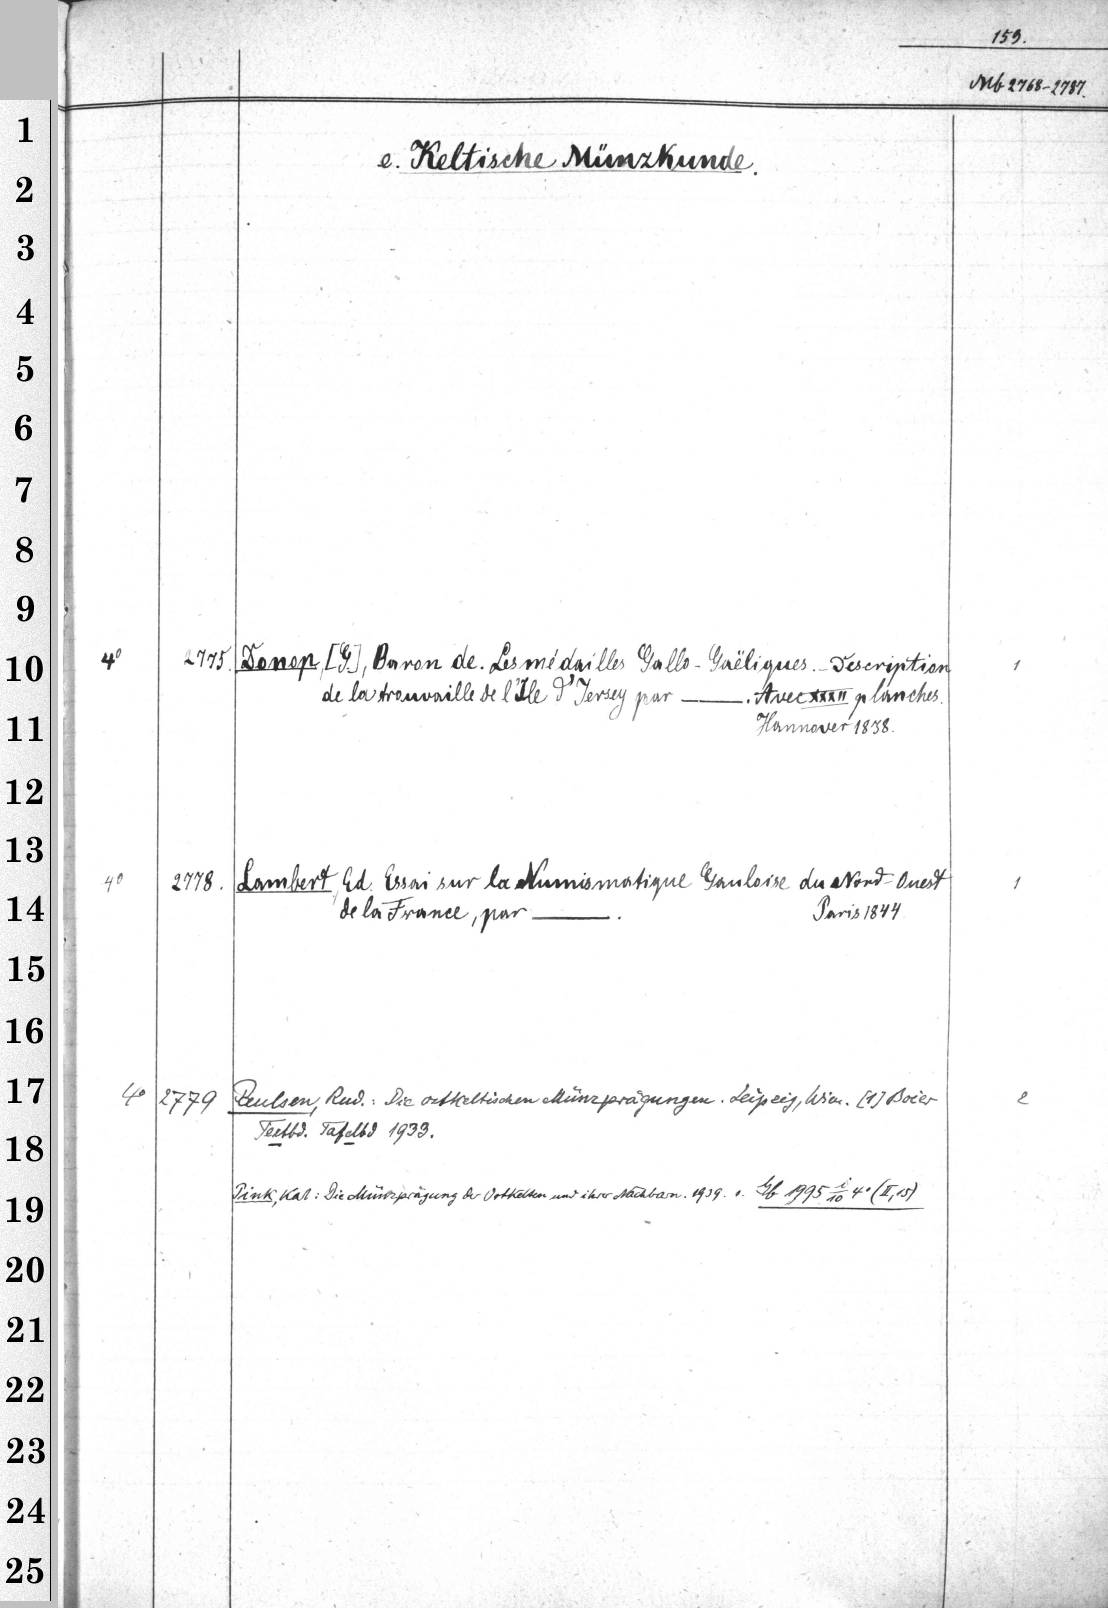 159.
Mb 2768-2787.
1
e. Keltische Münzkunde.
2
3
4
5
6
7
8
9
10
4° 2775. Donop, [G.], Baron de. Les médailles Gallo-Gaëliques. - Description 1
de la trouvaille de l'Ile d'Jersey par ———. Avec XXXII planches.
11
Hannover 1838.
12
13
4° 2778. Lambert, Ed. Essai sur la Numismatique Gauloise du Nord-Ouest 1
14
de la France, par ———. Paris 1844
15
16
17
4° 2779 Paulsen, Rud.: Die ostkeltischen Münzprägungen. Leipzig, Wien. [1] Boier 2
18
Textbd. Tafelbd 1933.
19
Pink, Karl: Die Münzprägung der Ostkelten und ihrer Nachbarn. 1939. s. Gb 1995 i/10 4° (II,15)
20
21
22
23
24
25